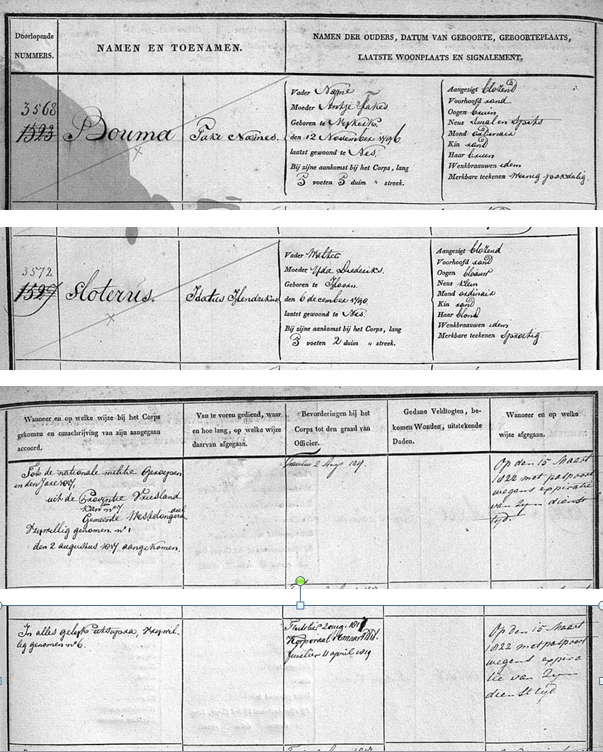 Doorlopende
NUMMERS.
NAMEN EN TOENAMEN.
NAMEN DER OUDERS, DATUM VAN GEBOORTE, GEBOORTEPLAATS,
LAATSTE WOONPLAATS EN SIGNALEMENT.
3568
1523
Bouma
Take Naanes.
Vader Naane
Moeder Antje Takes
Geboren te
den 12 November 1796
laatst gewoond te Nes.
Bij zijne aankomst bij het Corps, lang
5 voeten 3 duim " streek.
Aangezigt blozend
Voorhoofd rond
Oogen
Neus smal en spits
Mond ordinair
Kin rond
Haar
Wenkbraauwen idem
Merkbare teekenen weinig pokdalig
3572
1527
Sloterus.
Isatius Hendrikus
Vader
Moeder
Geboren te
den 6 december 1790
laatst gewoond te Nes
Bij zijne aankomst bij het Corps, lang
5 voeten 2 duim " streek.
Aangezigt blozend
Voorhoofd rond
Oogen blaauw
Neus klein
Mond ordinair
Kin rond
Haar blond
Wenkbraauwen idem
Merkbare teekenen sproetig.
Wanneer en op welke wijze bij het Corps
gekomen en omschrijving van zijn aangegaan
accoord.
Van te voren gediend, waar
en hoe lang, op welke wijze
daarvan afgegaan.
Bevorderingen bij het
Corps tot den graad van
Officier.
Gedane Veldtogten, be-
komen Wonden, uitstekende
Daden.
Wanneer en op welke
wijze afgegaan.
de nationale militie Geroepen
in den Jare 1817,
uit de Provintie Vriesland
Gemeente Westdongera deel
Vrijwillig genomen n° 1
den 2 augustus 1817 aangekomen.
Fuselier 2 Aug. 1817.
Op den 15 Maart
1822 met paspoort
wegens expiratie
van zijn dienst
tijd.
In alles gelijk, vrijwil-
lig genomen n° 6.
Fuselier 2 aug. 1817
Korporaal
fuselier 11 april 1819
Op den 15 Maart
1822 met paspoort
wegens expira
tie van zijn
dienst tijd